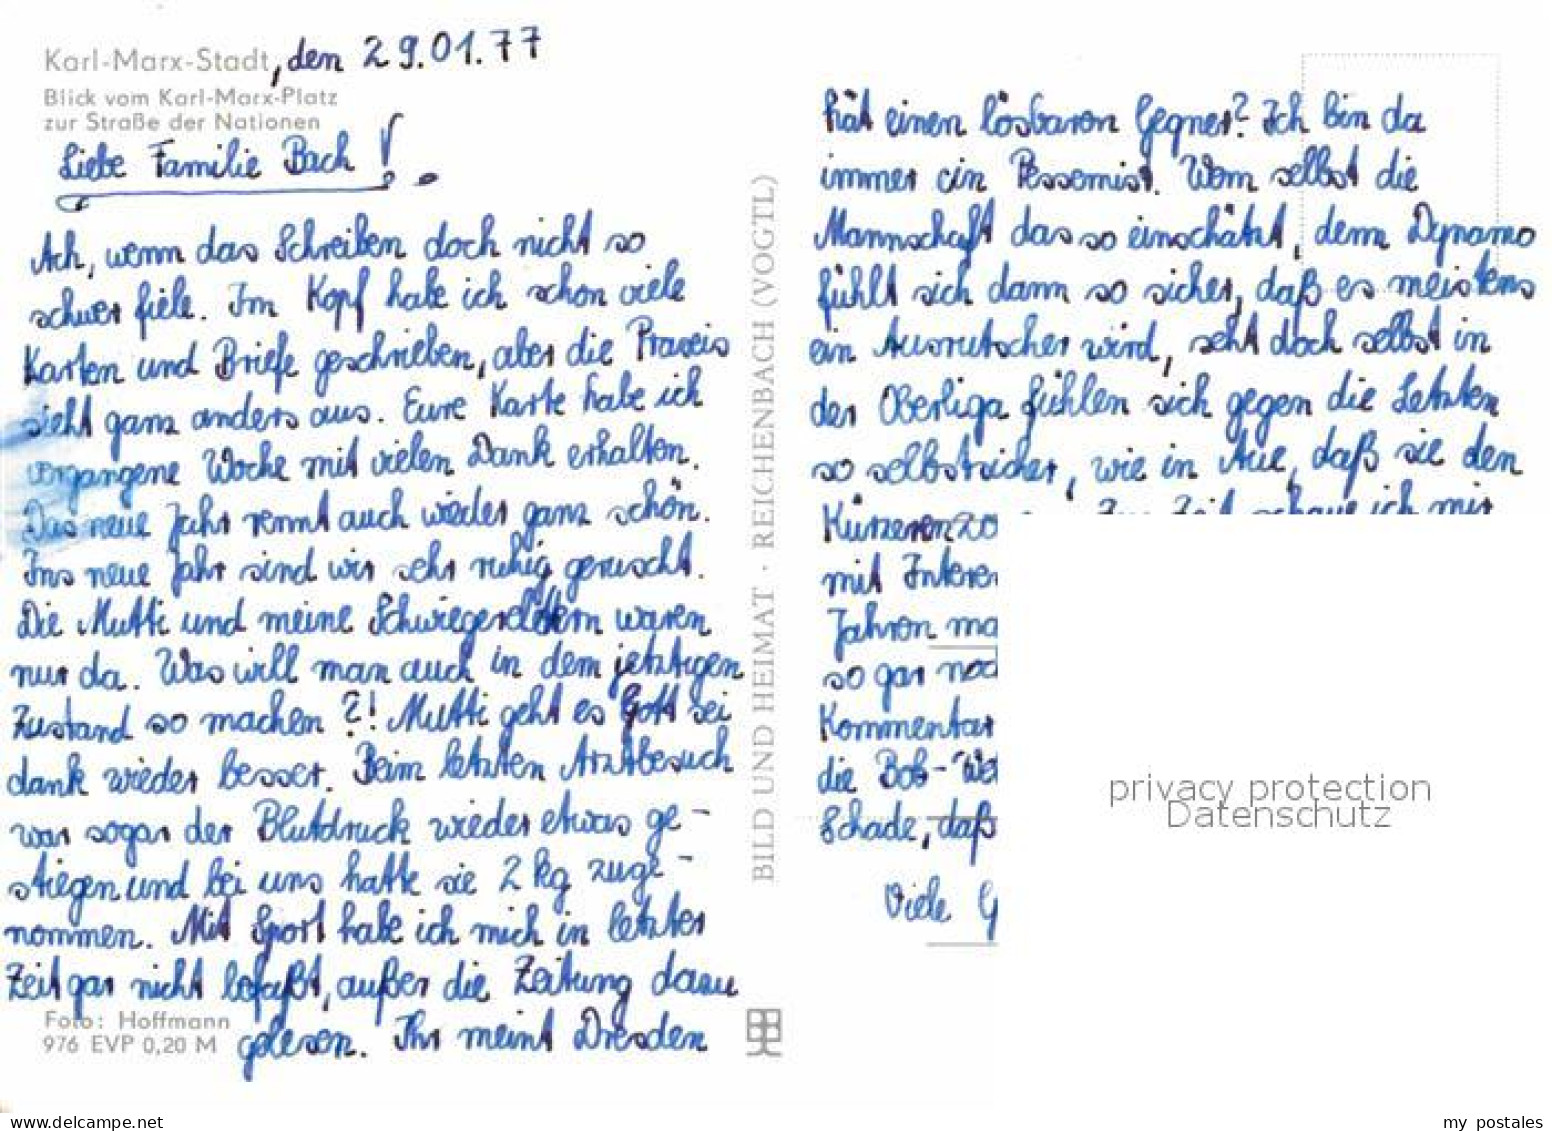 Karl-Marx-Stadt, den 29.01.77
Blick vom Karl-Marx-Platz
zur Straße der Nationen
Liebe Familie Bach!
Ach, wenn das Schreiben doch nicht so
schwer fiele. Im Kopf habe ich schon viele
Karten und Briefe geschrieben, aber die Praxis
sieht ganz anders aus. Eure Karte habe ich
vergangene Woche mit vielen Dank erhalten.
Das neue Jahr rennt auch wieder ganz schön.
Ins neue Jahr sind wir sehr ruhig gerutscht.
Die Mutti und meine Schwiegereltern waren
nur da. Was will man auch in dem jetztigen
Zustand so machen ?! Mutti geht es Gott sei
dank wieder besser. Beim letzten Arztbesuch
war sogar der Blutdruck wieder etwas ge-
stiegen und bei uns hatte sie 2 kg zuge-
nommen. Mit Sport habe ich mich in letzter
Zeit gar nicht befaßt, außer die Zeitung dazu
gelesen. Ihr meint Dresden
Foto: Hoffmann
976 EVP 0,20 M
BILD UND HEIMAT · REICHENBACH (VOGTL)
hät einen lösbaren Gegner? Ich bin da
immer ein Pessemist. Wenn selbst die
Mannschaft das so einschätzt, denn Dynamo
fühlt sich dann so sicher, daß es meistens
ein Ausrutscher wird, seht doch selbst in
der Oberliga fühlen sich gegen die Letzten
so selbstsicher, wie in Aue, daß sie den
Kürzeren zo Zur Zeit schaue ich mir
mit Interes
Jahren ma
so gar noc
Kommentar
die Bob-We
Schade, daß
Viele G
privacy protection
Datenschutz
www.delcampe.net
my postales